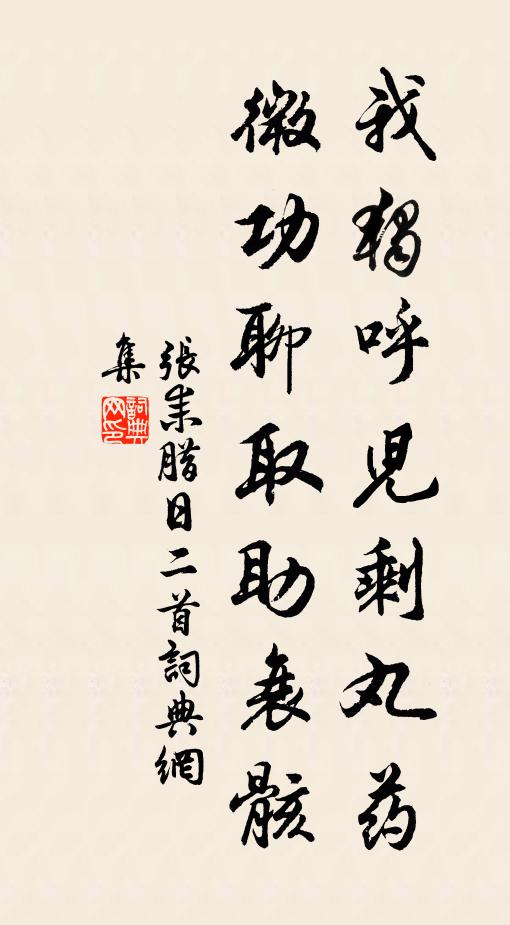 我獨呼児剩丸药
微功聊取助衰骸
張耒腊日二首詞典網
集
詞典
网印